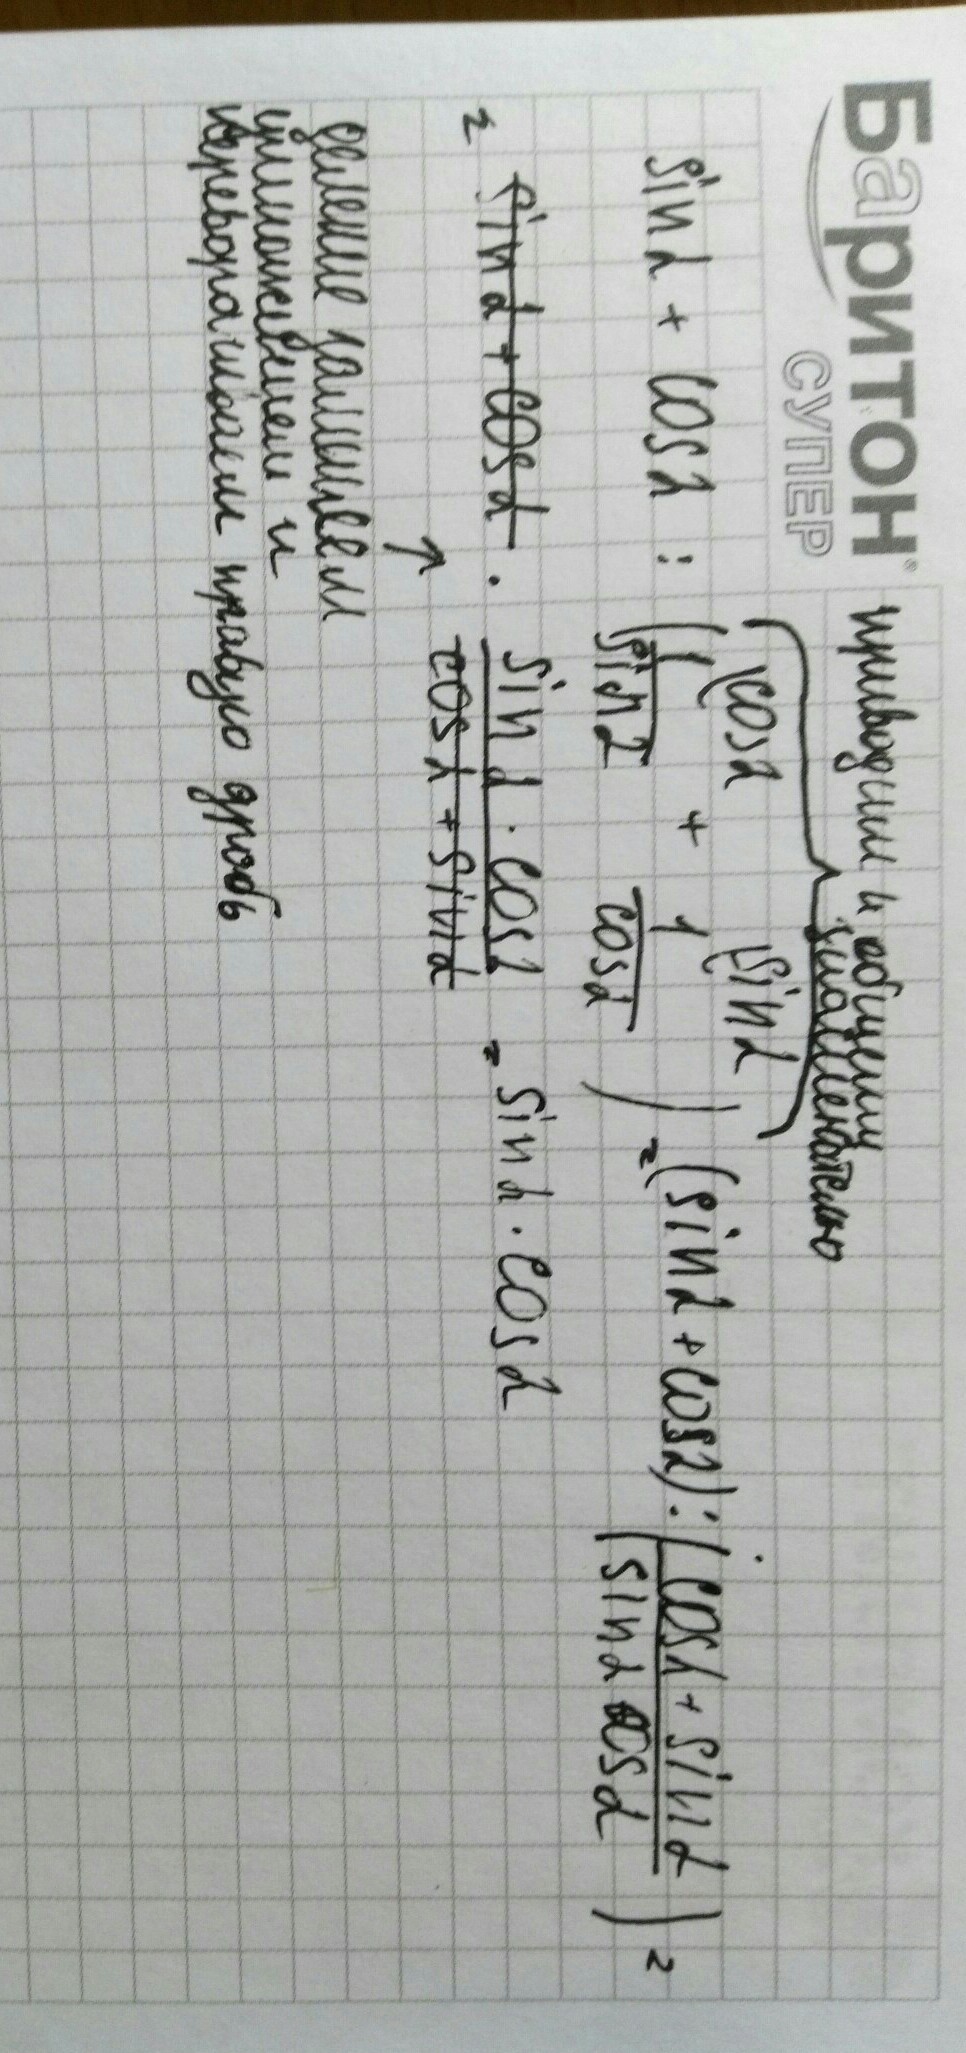 Баритон®
СУПЕР
приводим к общему
знаменателю
sin α + cos α : ( 1\cos α / sin α + 1\sin α / cos α ) = (sin α + cos α) : ( cos α + sin α / sin α cos α ) =
= sin α + cos α · sin α · cos α / cos α + sin α = sin α · cos α
↑
деление заменяем
умножением и
переворачиваем правую дробь